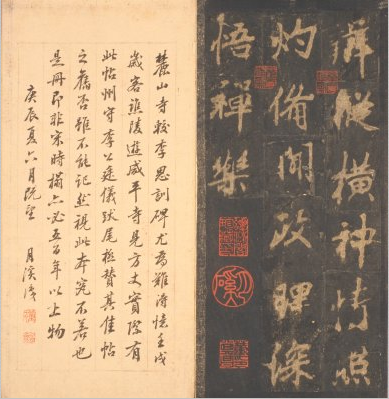 縱橫神清照
灼備聞政理深
悟禪樂
麓山寺較李思訓碑尤為難得憶壬戌
歲客譙陵遊咸平寺見方丈實際有
此帖州守李公廷儀跋尾極贊其佳帖
之舊否雖不能記然視此本宛不若也
是冊即非宋時搨亦必五百年以上物
庚辰夏六月既望 月溪